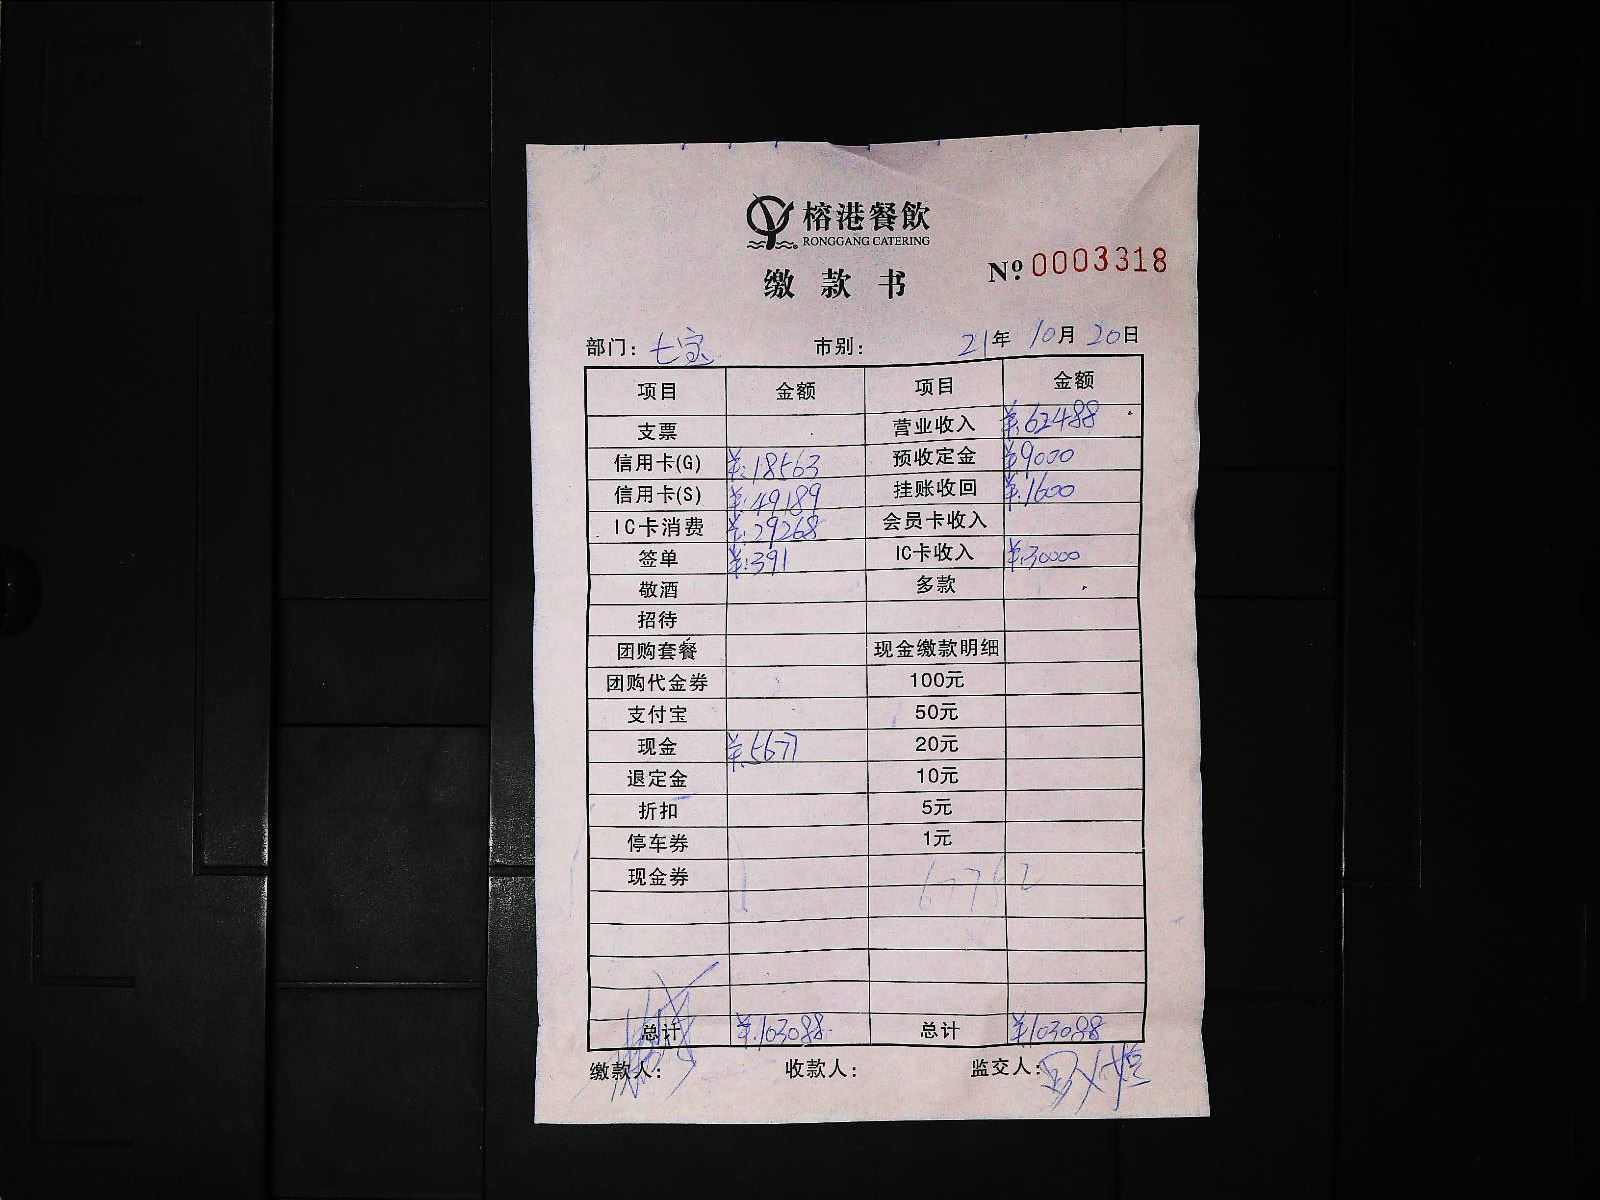 榕港餐飲
RONGGANG CATERING
缴款书
№ 0003318
部门：七宝 市别： 21年 10月 20日
项目 金额 项目 金额
支票 营业收入 ¥:62488
信用卡(G) ¥:18563 预收定金 ¥9000
信用卡(S) ¥:49189 挂账收回 ¥:1600
IC卡消费 ¥:29268 会员卡收入
签单 ¥:391 IC卡收入 ¥:30000
敬酒 多款
招待
团购套餐 现金缴款明细
团购代金券 100元
支付宝 50元
现金 ¥:5677 20元
退定金 10元
折扣 5元
停车券 1元
现金券
67752
总计 ¥:103088 总计 ¥:103088
缴款人： 收款人： 监交人：